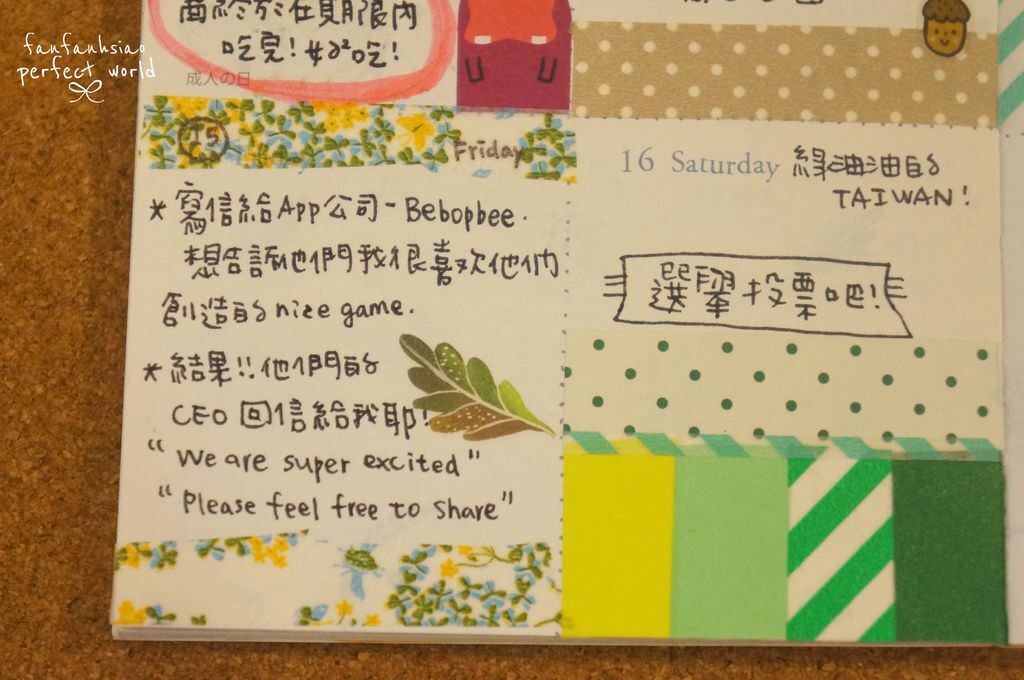 fanfanhsiao
perfect world
商給於在期限內
吃完!好好吃!
成人の日
15
Friday
* 寫信給App公司-Bebopbee.
想告訴他們我很喜歡他們
創造的nice game.
* 結果!!他們的
CEO 回信給我耶!
"We are super excited"
"Please feel free to share"
16 Saturday 綠油油的
TAIWAN!
選舉投票吧!